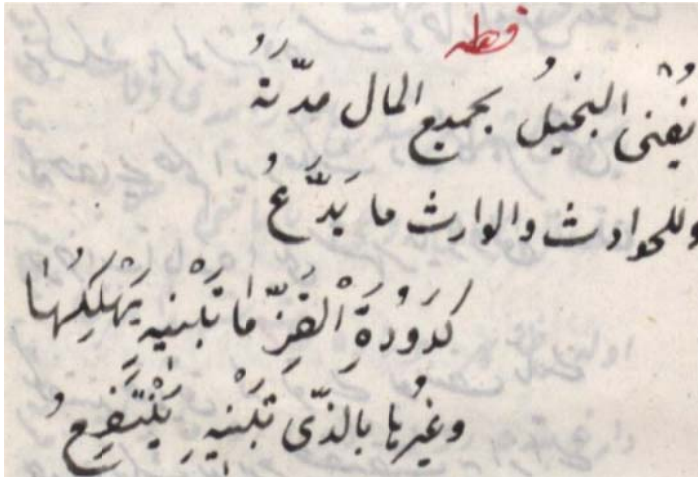 قطعه
يُفنى البخيلُ بجميع المال مدّتهُ
وللحوادث والوارث ما يَدَّعُ
كدَودُةِ اَلْقَزِّ ما تَبْنيهِ يَهْلِكِهُا
وغيرُها بالذّى تَبْنيهِ يَنْتَفِعُ